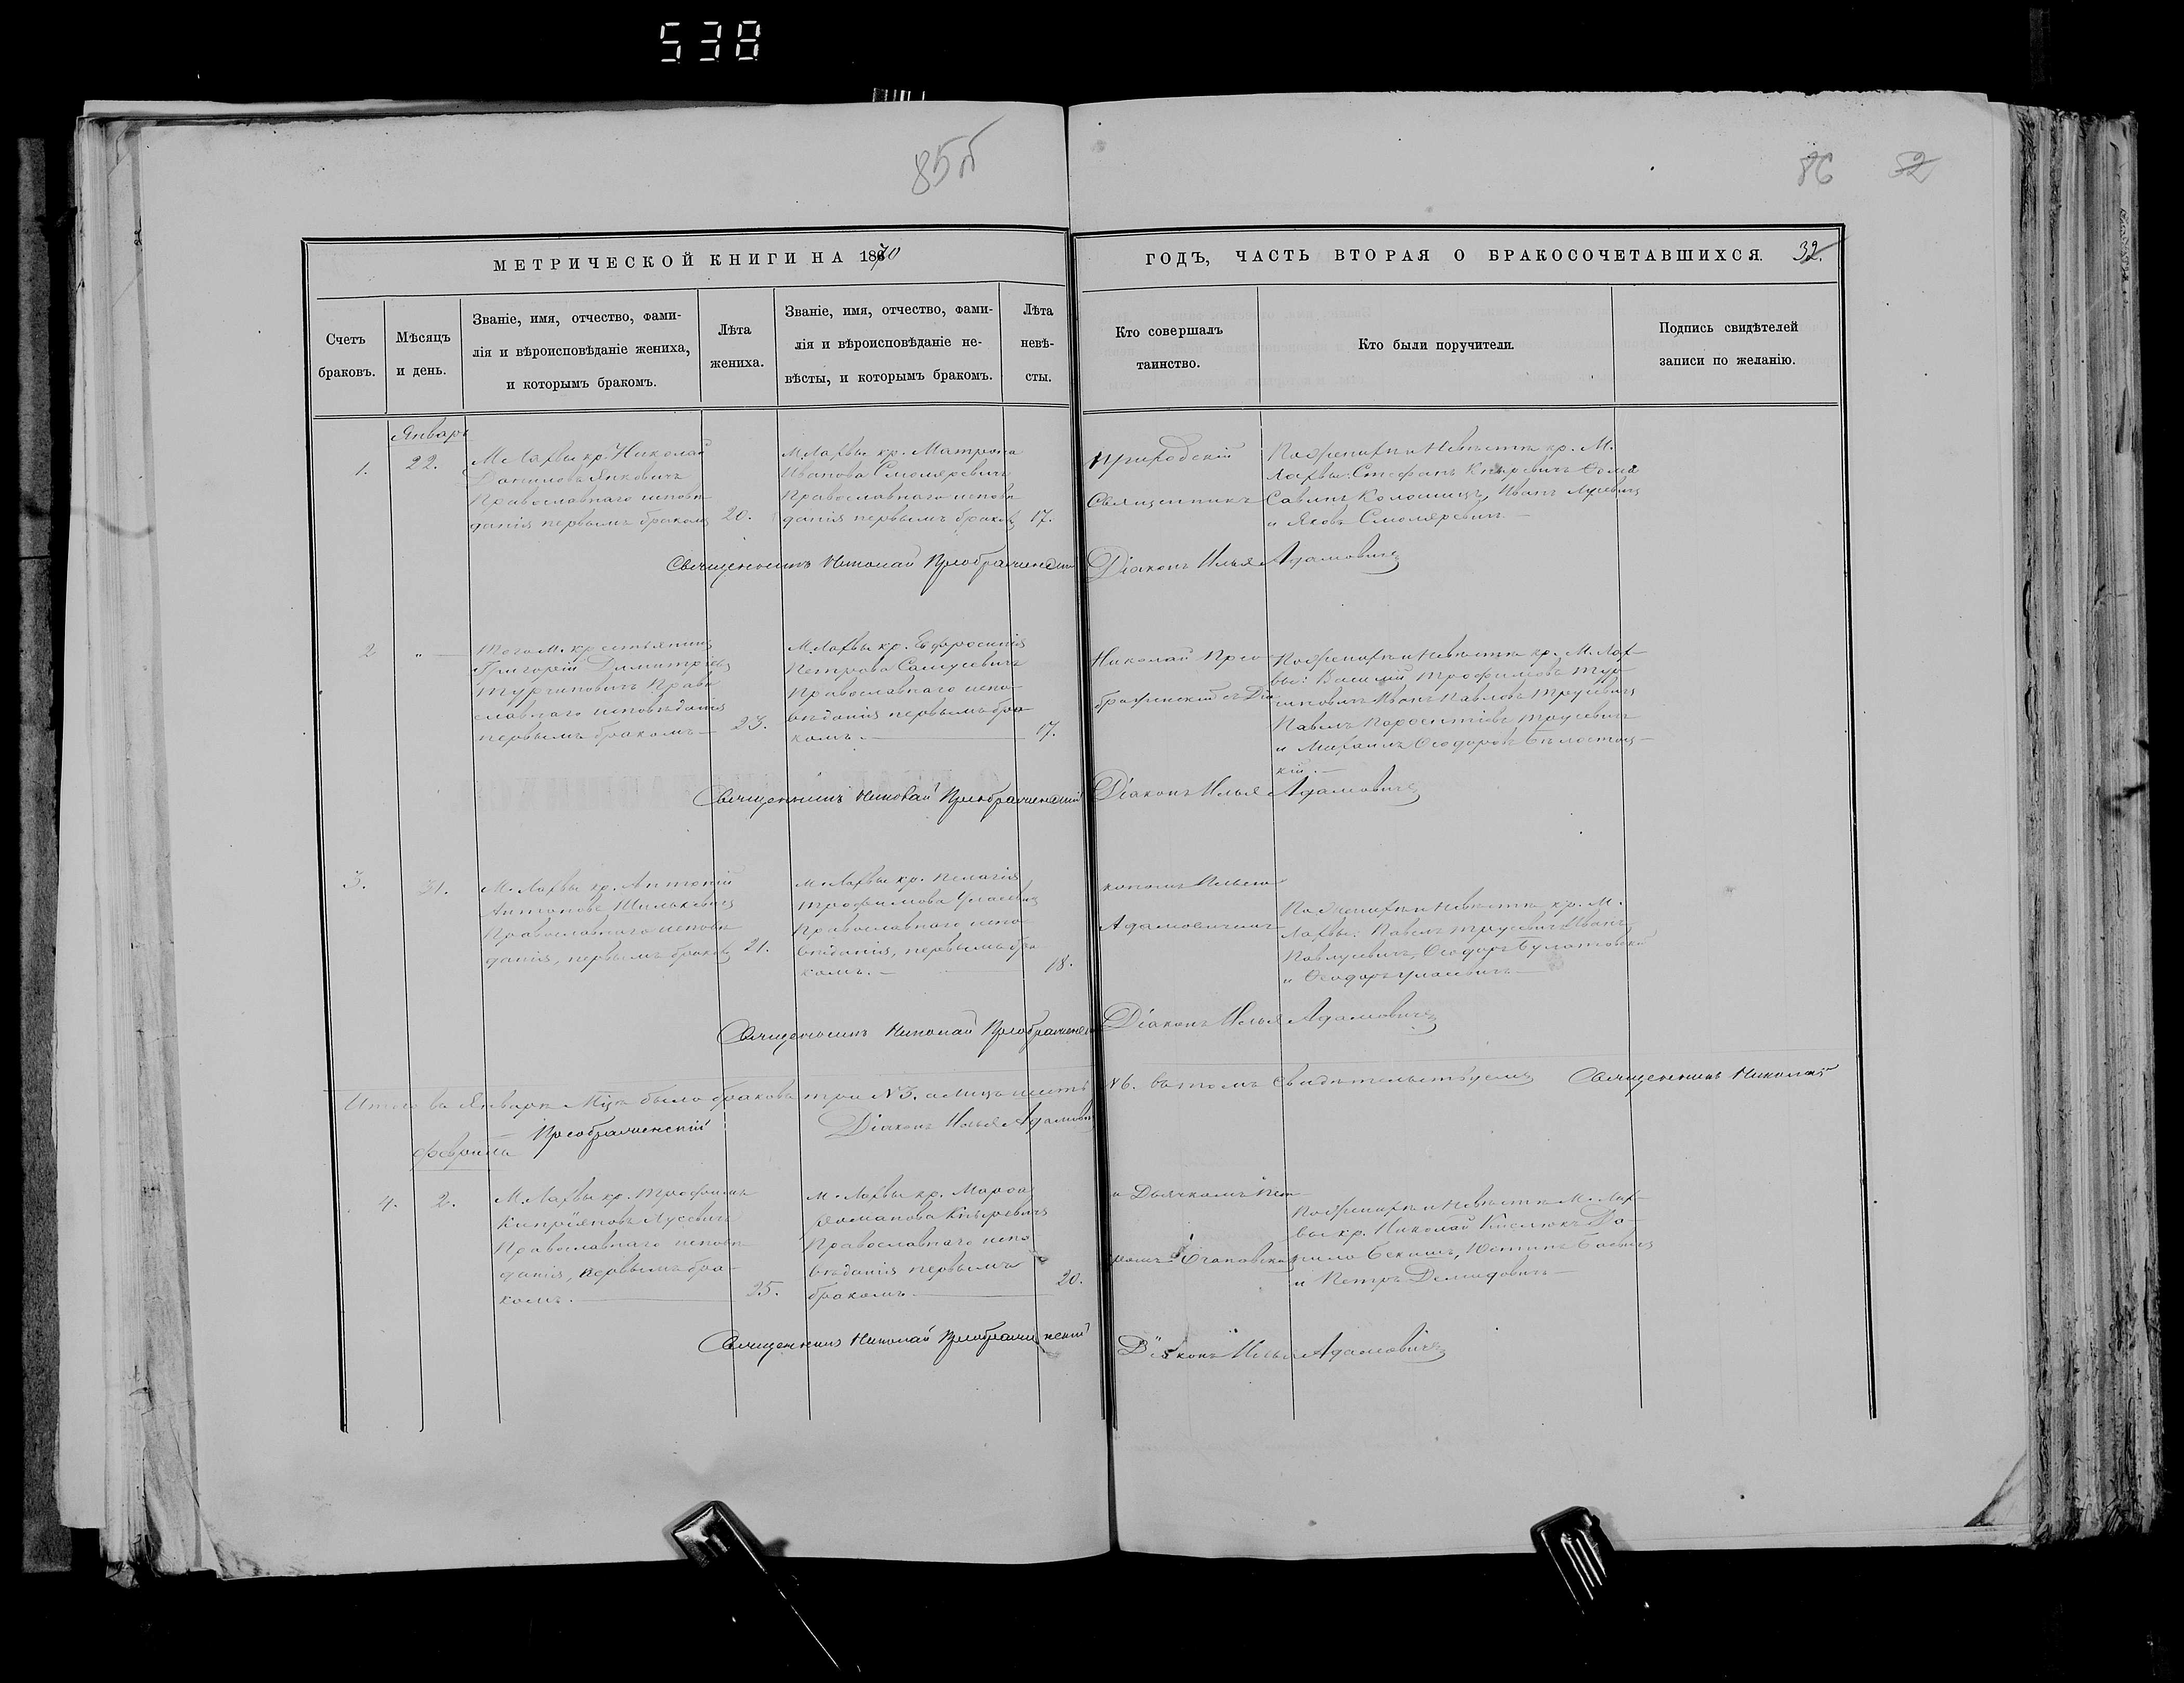 538
85об
86 52
МЕТРИЧЕСКОЙ КНИГИ НА 1870
ГОДЪ, ЧАСТЬ ВТОРАЯ О БРАКОСОЧЕТАВШИХСЯ. 32.
Счетъ браковъ.
Мѣсяцъ и день.
Званіе, имя, отчество, фами-
лія и вѣроисповѣданіе жениха,
и которымъ бракомъ.
Лѣта жениха.
Званіе, имя, отчество, фами-
лія и вѣроисповѣданіе не-
вѣсты, и которымъ бракомъ.
Лѣта невѣ-
сты.
Кто совершалъ
таинство.
Кто были поручители.
Подпись свидѣтелей
записи по желанію.
Январь
1.
22.
М. Лахвы кр. Николай
Даниловъ Янковичъ
Православнаго исповѣ
данія первымъ бракомъ
20.
М. Лахвы кр. Матрона
Иванова Смоляревичъ
Православнаго исповѣ
данія первымъ бракомъ
17.
Приходскій
Священникъ
По женихѣ и невѣстѣ кр. М.
Лахвы: Стефанъ Кныревичъ Ѳома
Савинъ Коломиецъ, Иванъ Лусевичъ
и Яковъ Смоляревичъ.
Священникъ Николай Преображенскій
Діаконъ Илья Адамовичъ
2
"
Того М. крестьянинъ
Григорій Димитріевъ
Турчиновичъ Право
славнаго исповѣданія
первымъ бракомъ
23.
М. Лахвы кр. Евфросинія
Петрова Самусевичъ
Православнаго испо
вѣданія первымъ бра
комъ.
17.
Николай Прео
браженскій съ Діа
По женихѣ и невѣстѣ кр. М. Лах-
вы: Василій Трофимовъ Тур
чиновичъ Иванъ Павловъ Трусевичъ
Павелъ Парѳентіевъ Трусевичъ
и Михаилъ Ѳеодоровъ Бѣлостоц-
кій.
Священникъ Николай Преображенскій
Діаконъ Илья Адамовичъ
3.
31.
М. Лахвы кр. Антоній
Антоновъ Шилькевичъ
Православнаго исповѣ
данія, первымъ бракомъ
21.
М. Лахвы кр. Пелагія
Трофимова
Православнаго испо
вѣданія, первымъ бра
комъ.
18.
кономъ Ильею
Адамовичемъ
По женихѣ и невѣстѣ кр. М.
Лахвы: Павелъ Трусевичъ Иванъ
Павлусевичъ, Ѳеодоръ Булатовскій
и Ѳеодоръ
Священникъ Николай Преображенскій
Діаконъ Илья Адамовичъ
Итого въ Январѣ М-цѣ было браковъ три N3. а лицъ шесть N6. въ томъ свидѣтельствуемъ Священникъ Николай
Преображенскій
Діаконъ Илья Адамовичъ
Февраль
4.
2.
М. Лахвы кр. Трофимъ
Кипріяновъ Лусевичъ
Православнаго исповѣ
данія, первымъ бра-
комъ.
25.
М. Лахвы кр. Марѳа
Романова Кныревичъ
Православнаго испо
вѣданія первымъ
бракомъ
20.
и Дьячкомъ Пет
ромъ
По женихѣ и невѣстѣ М. Лах-
вы кр. Николай Киселюкъ Да-
нило Бекишъ, Юстинъ Баевичъ
и Петръ Демидовичъ
Священникъ Николай Преображенскій
Діаконъ Илья Адамовичъ